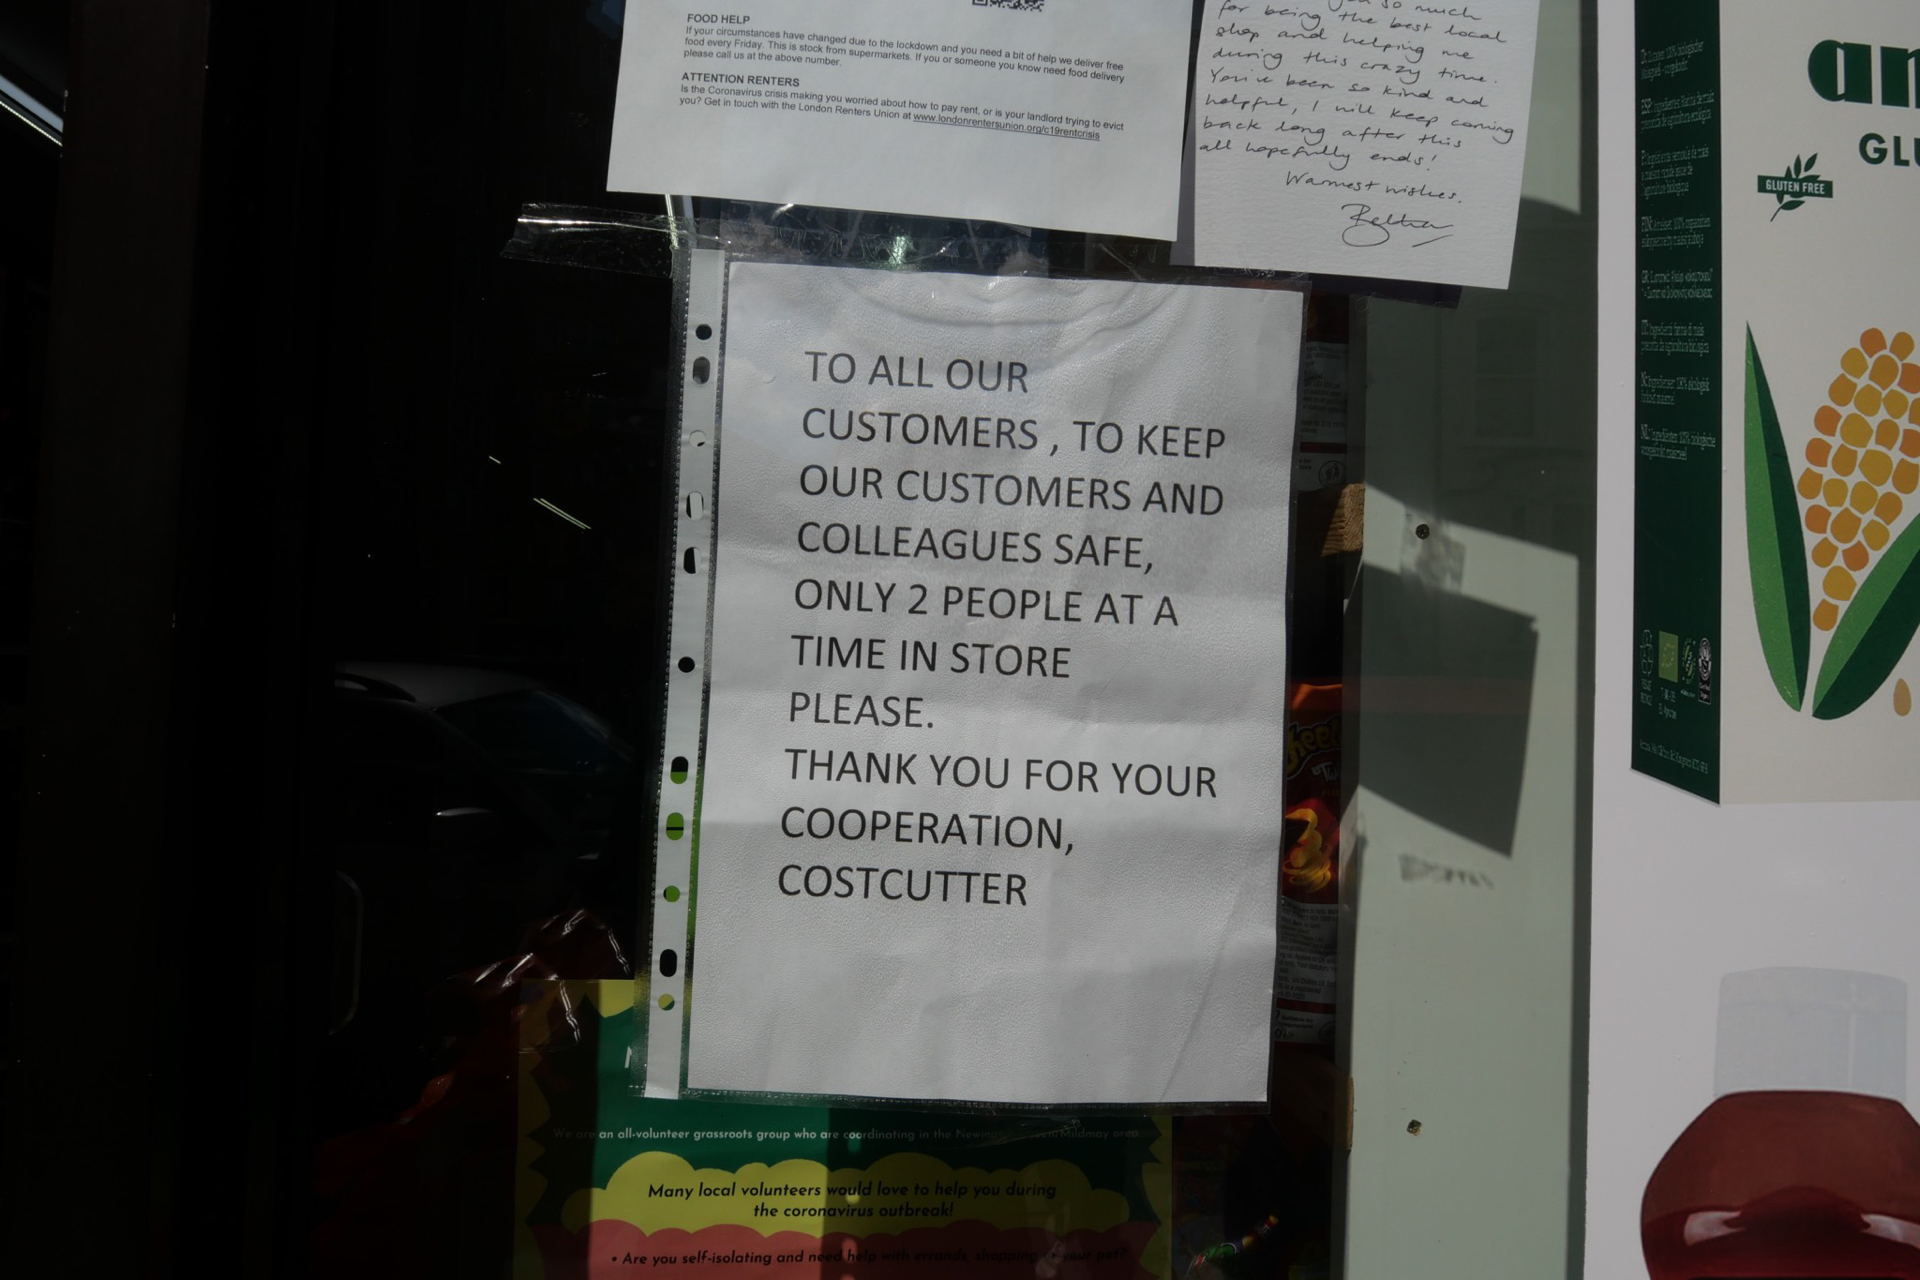 FOOD HELP
If your circumstances have changed due to the lockdown and you need a bit of help we deliver free
food every Friday. This is stock from supermarkets. If you or someone you know need food delivery
please call us at the above number.
ATTENTION RENTERS
Is the Coronavirus crisis making you worried about how to pay rent, or is your landlord trying to evict
you? Get in touch with the London Renters Union at www.londonrentersunion.org/c19rentcrisis
so much
for being the best local
shop and helping me
during this crazy time.
You've been so kind and
helpful, I will keep coming
back long after this
all hopefully ends!
Warmest wishes.
TO ALL OUR
CUSTOMERS , TO KEEP
OUR CUSTOMERS AND
COLLEAGUES SAFE,
ONLY 2 PEOPLE AT A
TIME IN STORE
PLEASE.
THANK YOU FOR YOUR
COOPERATION,
COSTCUTTER
We are an all-volunteer grassroots group who are coordinating in the Mildmay area
Many local volunteers would love to help you during
the coronavirus outbreak!
• Are you self-isolating and need help with errands, shopping or your pet?
am
GLU
GLUTEN FREE